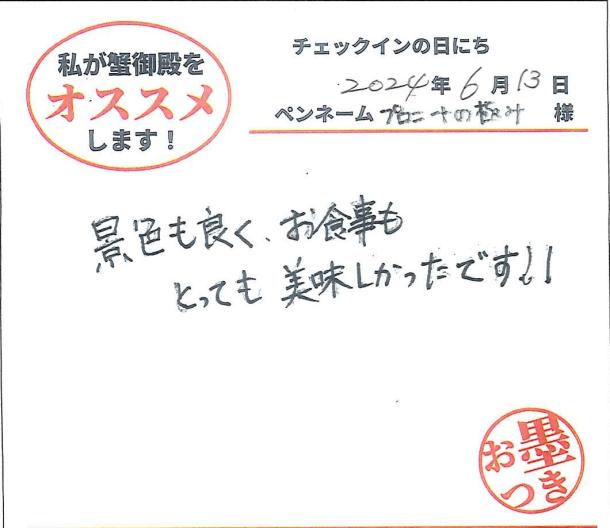 私が蟹御殿を
オススメ
します！
チェックインの日にち
2024年6月13日
ペンネーム プロニートの極み 様
景色も良く、お食事も
とっても美味しかったです!!
お墨
つき